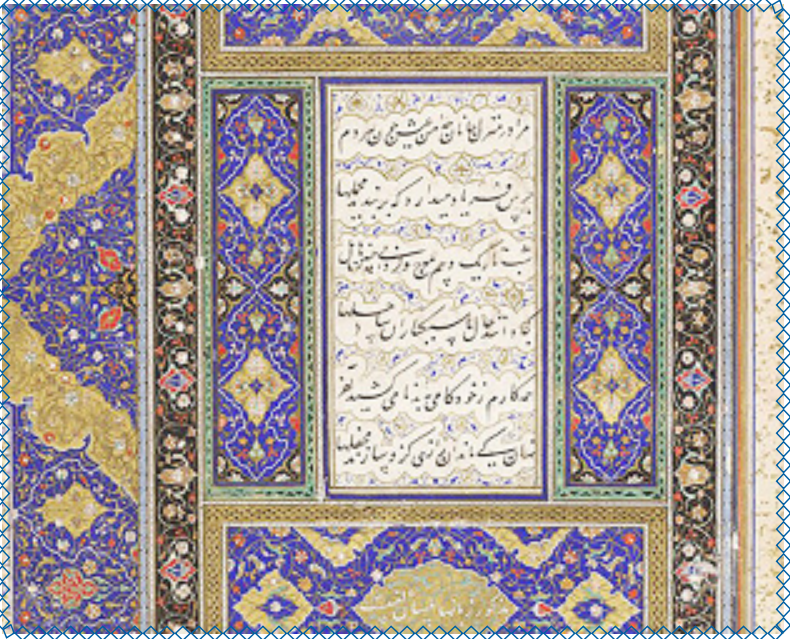 مرا در منزل جانان چه امن عیش چون هر دم
جرس فریاد میدارد که بربندید محملها
شب تاریک و بیم موج و گردابی چنین هایل
کجا دانند حال ما سبکباران ساحلها
همه کارم ز خود کامی به بدنامی کشید آخر
نهان کی ماند آن رازی کزو سازند محفلها